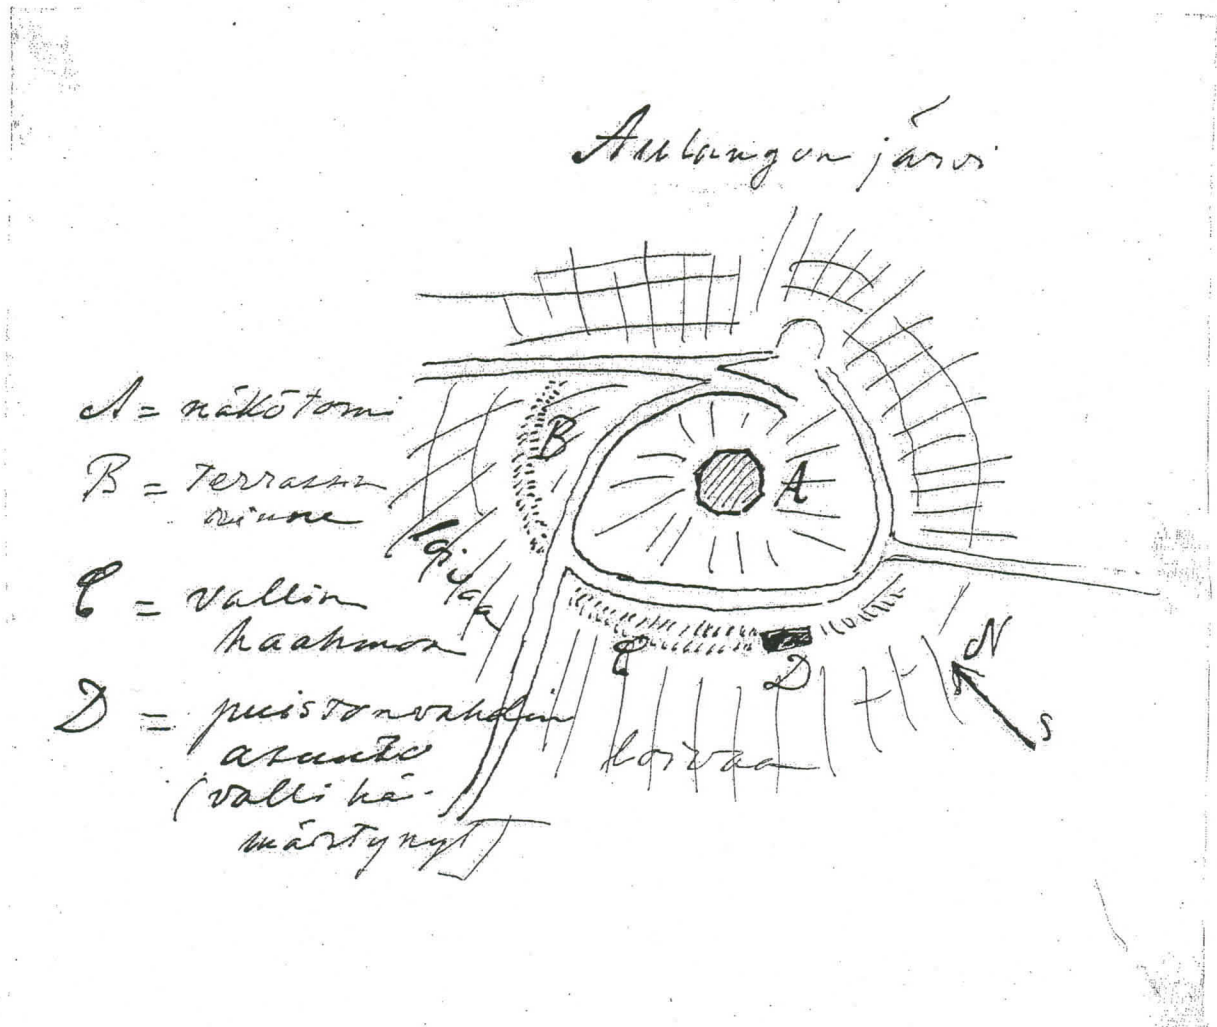 Aulangon järvi
A = näkötorni
B = terrassin
rinne
C = vallin
haahmoa
D = puistonvahdin
asunto
(valli hä-
märtynyt)
B
A
loivaa
C
D
N
S
loivaa